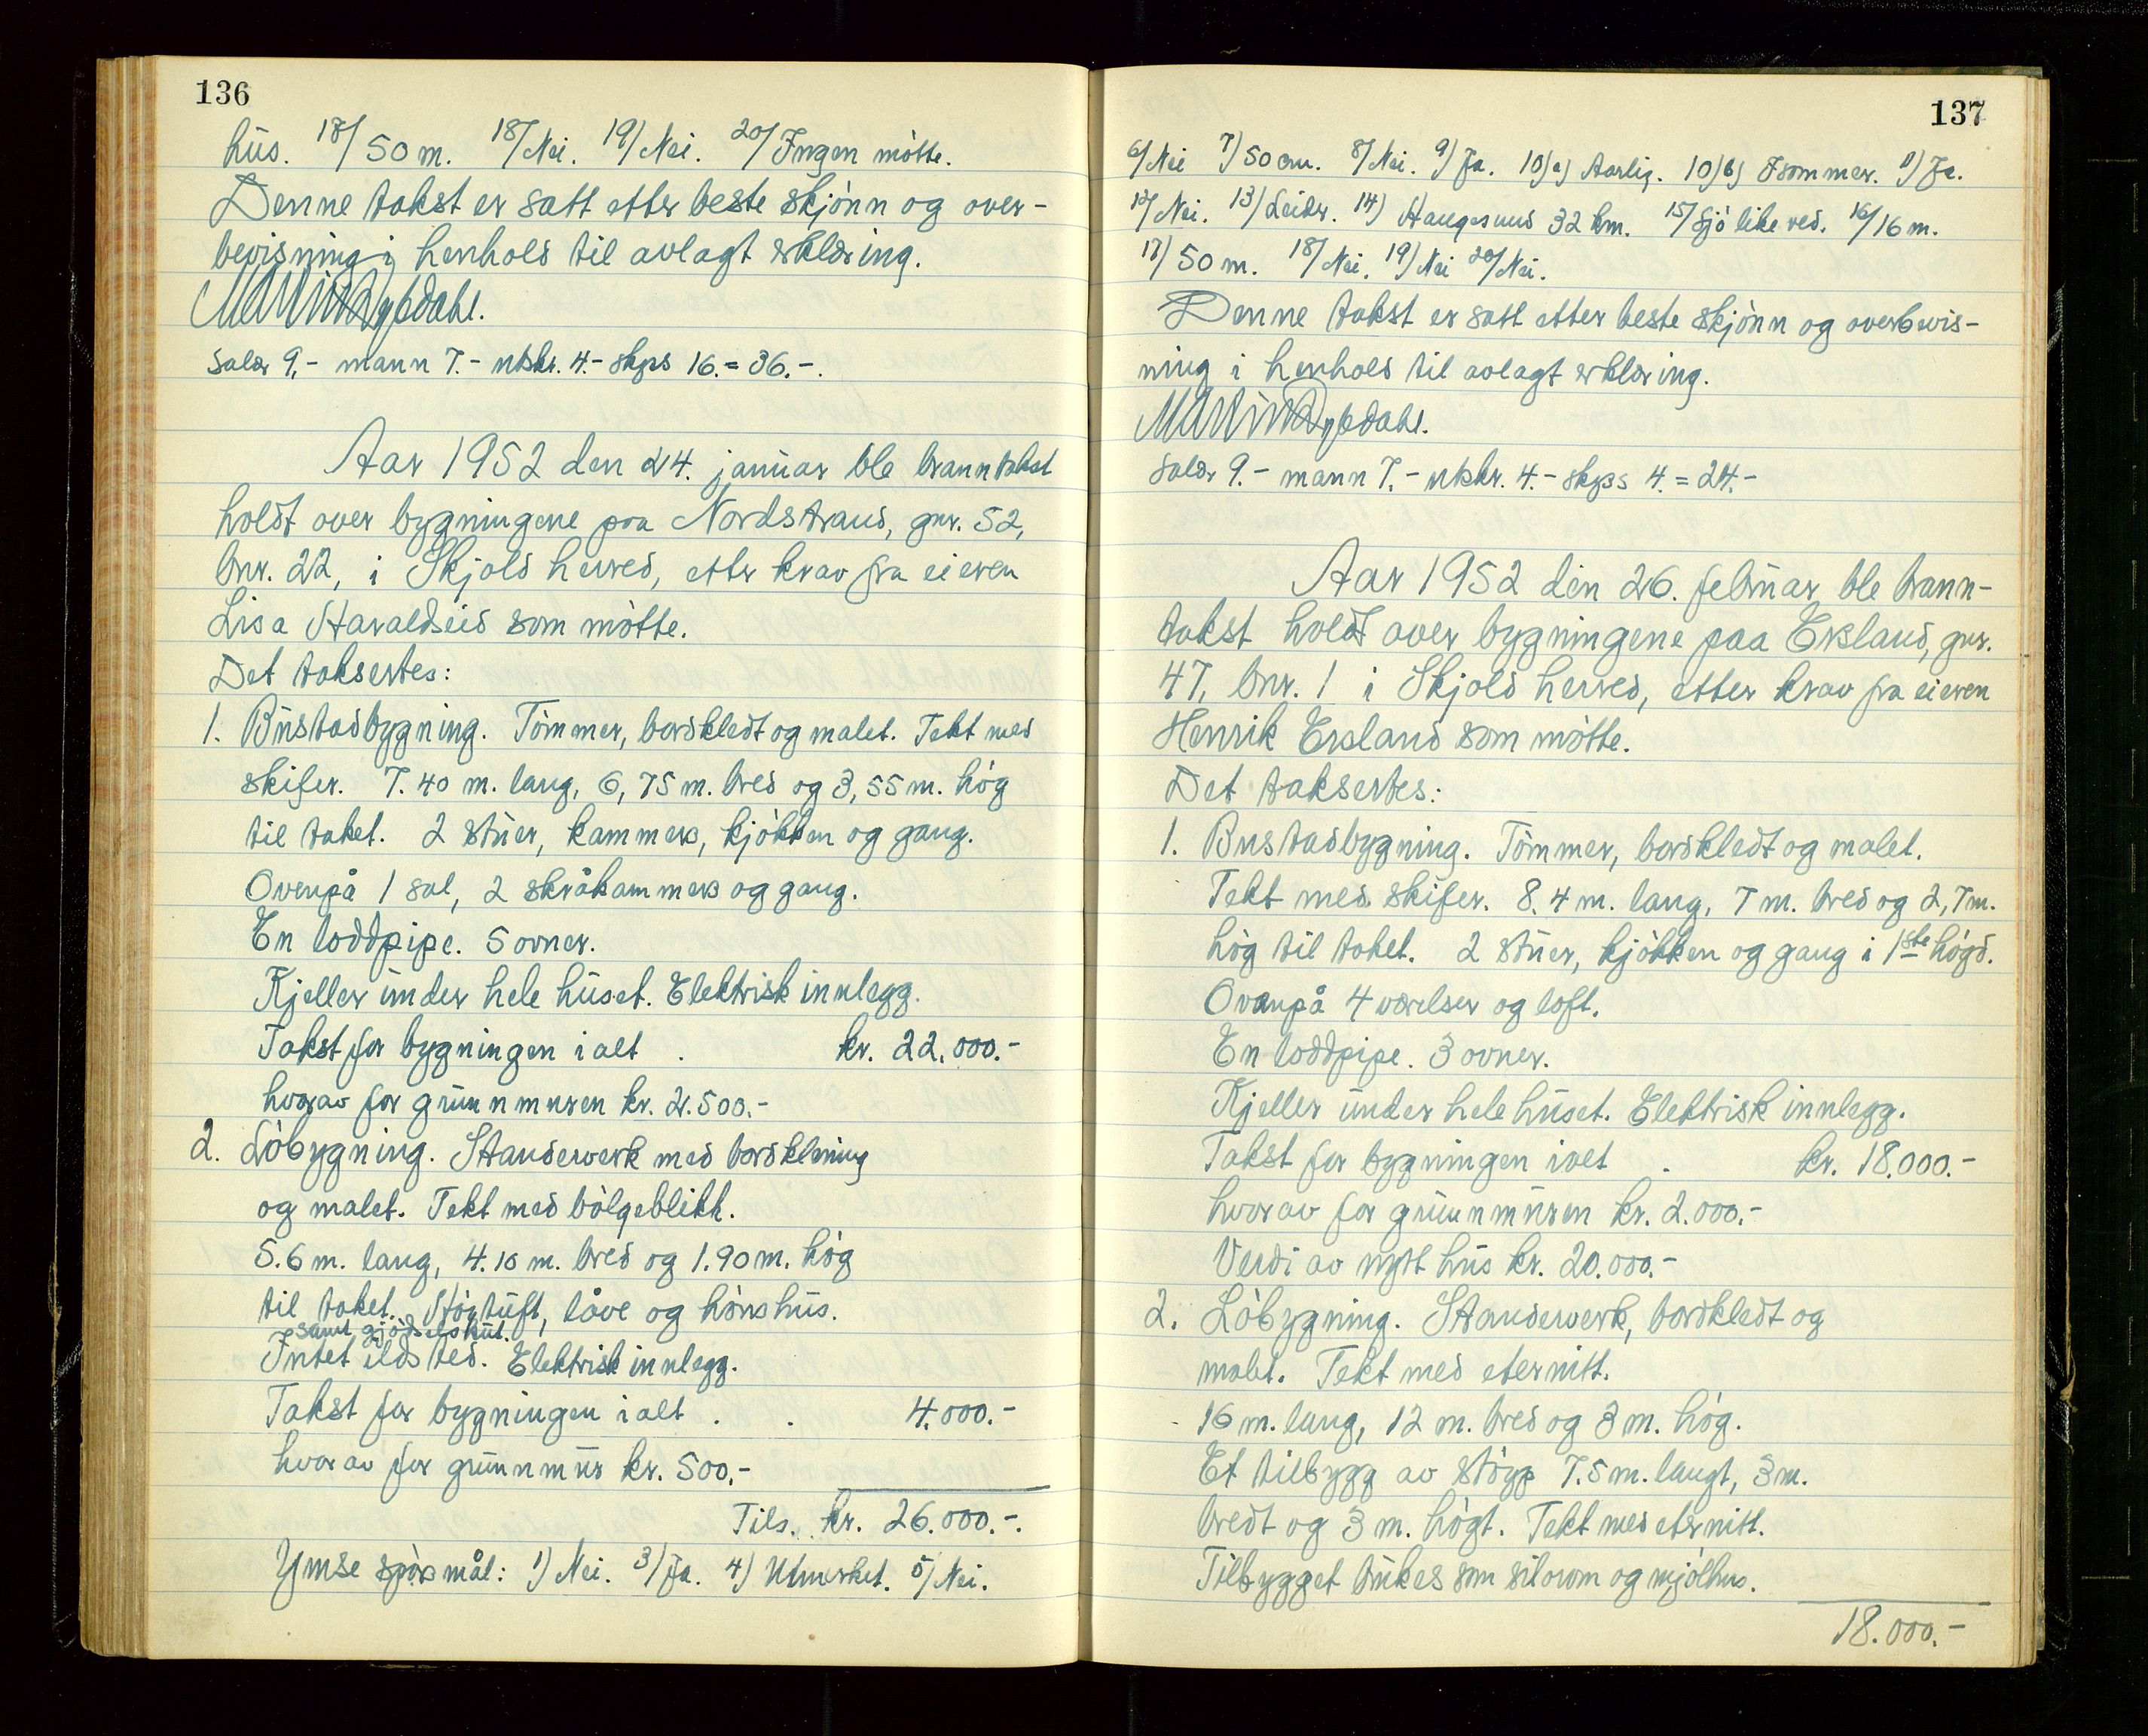 136
hus. 18/ 50 m. 18/ Nei. 19/ Nei. 20/ Ingen mòtte.
Denne takst er satt etter beste skjònn og over-
bevisning i henhold til avlagt erklæring.
Martin Dybdahl.
Salær 9,- mann 7.- utskr. 4.- skyss 16. = 36.-.
Aar 1952 den 24. januar ble branntakst
holdt over bygningene paa Nordstrand, gnr. 52,
bnr. 22, i Skjold herred, etter krav fra eieren
Lisa Haraldseid som mòtte.
Det taksertes:
1. Bustadbygning. Tòmmer, bordkledt og malet. Tekt med
skifer. 7.40 m. lang, 6,75 m. bred og 3,55 m. hòg
til taket. 2 stuer, kammers, kjòkken og gang.
Ovenpå 1 sal, 2 skråkammers og gang.
En loddpipe. 5 ovner.
Kjeller under hele huset. Elektrisk innlegg.
Takst for bygningen ialt . kr. 22.000.-
hvorav for grunnmuren kr. 2.500.-
2. Lòbygning. Standerverk med bordkledning
og malet. Tekt med bòlgeblikk.
5.6 m. lang, 4.10 m. bred og 1.90 m. hòg
til taket. Hòytuft, låve og hònshus.
samt gjòdselskut.
Intet ildsted. Elektrisk innlegg.
Takst for bygningen ialt . . 4.000.-
hvorav for grunnmur kr. 500.-
Tils. kr. 26.000.-.
Ymse spòrsmål: 1) Nei. 3/ Ja. 4) Utmerket. 5/ Nei.
137
6/ Nei 7) 50 cm. 8/ Nei. 9) Ja. 10)a) Aarlig. 10)b) Fsommer. 11) Ja.
12/ Nei. 13) Leidr. 14) Haugesund 32 km. 15/ Sjò like ved. 16/ 16 m.
17) 50 m. 18/ Nei. 19) Nei 20/ Nei.
Denne takst er satt etter beste skjònn og overbevis-
ning i henhold til avlagt erklæring.
Martin Dybdahl.
Salær 9.- mann 7.- utskr. 4.- skyss 4. = 24.-
Aar 1952 den 26. februar ble brann-
takst holdt over bygningene paa Erland, gnr.
47, bnr. 1 i Skjold herred, etter krav fra eieren
Henrik Erland som mòtte.
Det taksertes:
1. Bustadbygning. Tòmmer, bordkledt og malet.
Tekt med skifer. 8.4 m. lang, 7 m. bred og 2,7 m.
hòg til taket. 2 stuer, kjòkken og gang i 1ste hògd.
Ovenpå 4 værelser og loft.
En loddpipe. 3 ovner.
Kjeller under hele huset. Elektrisk innlegg.
Takst for bygningen ialt . kr. 18.000.-
hvorav for grunnmuren kr. 2.000.-
Verdi av nytt hus kr. 20.000.-
2. Lòbygning. Standerverk, bordkledt og
malet. Tekt med eternitt.
16 m. lang, 12 m. bred og 3 m. hòg.
Et tilbygg av stòyp 7.5 m. langt, 3 m.
bredt og 3 m. hògt. Tekt med eternitt.
Tilbygget brukes som silorom og mjòlhus.
18.000.-